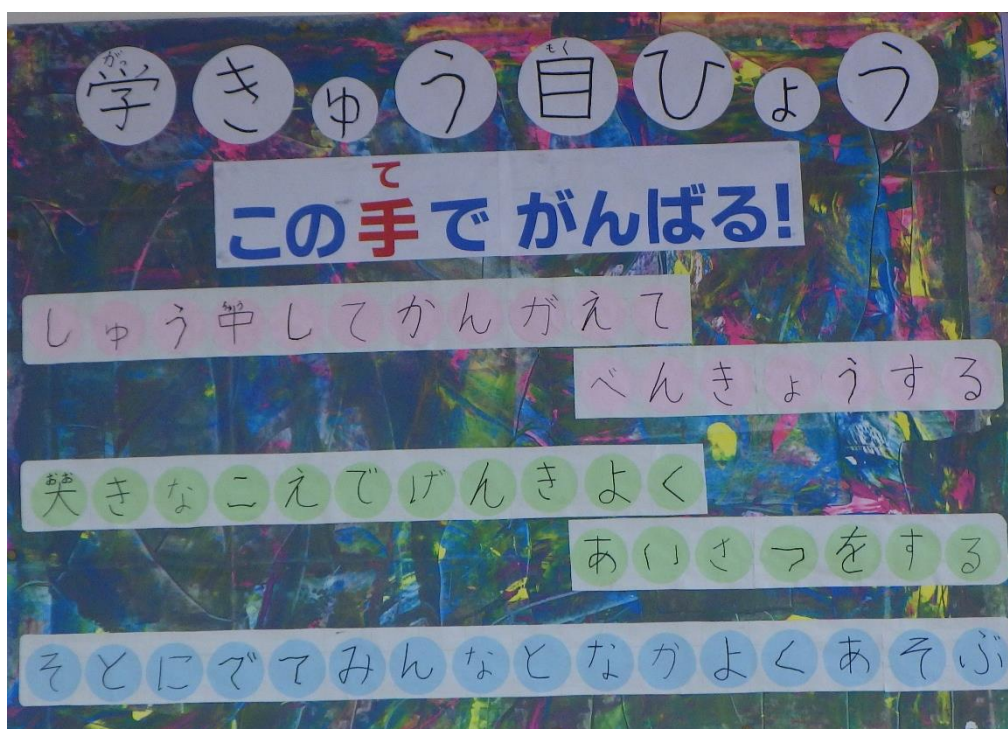 学きゅう目ひょう
この手で がんばる!
しゅう中してかんがえて
べんきょうする
大きなこえでげんきよく
あいさつをする
そとにでてみんなとなかよくあそぶ